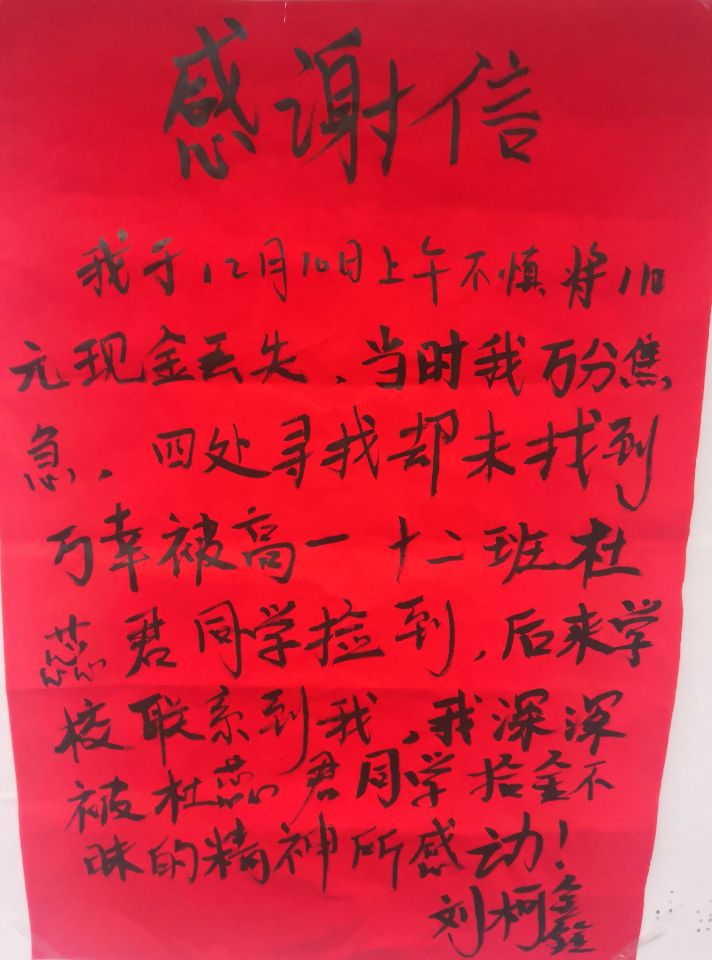 感谢信
我于12月10日上午不慎将110
元现金丢失、当时我万分焦
急、四处寻找却未找到
万幸被高一十二班杜
蕊君同学捡到，后来学
校联系到我，我深深
被杜蕊君同学拾金不
昧的精神所感动！
刘柯鑫